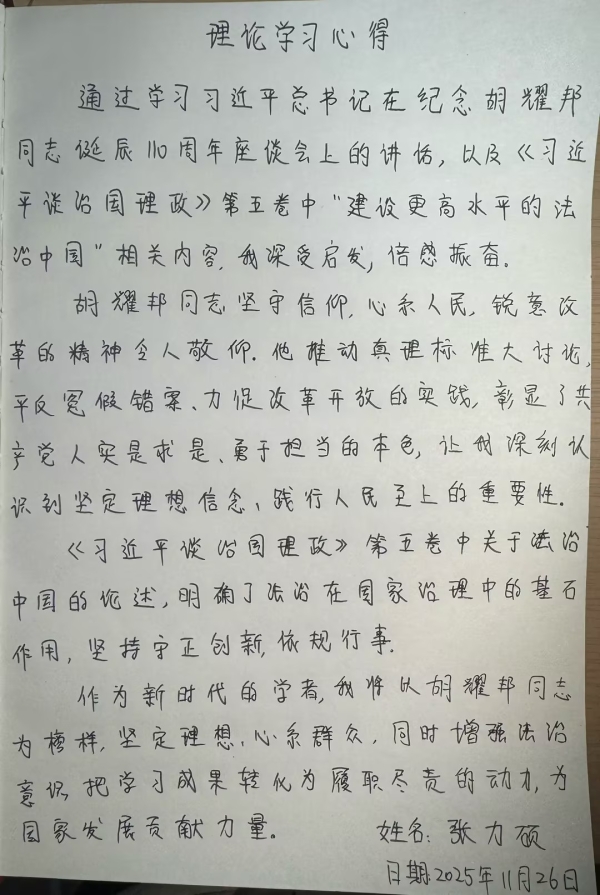 理论学习心得
通过学习习近平总书记在纪念胡耀邦
同志诞辰110周年座谈会上的讲话，以及《习近
平谈治国理政》第五卷中“建设更高水平的法
治中国”相关内容，我深受启发，倍感振奋。
胡耀邦同志坚守信仰，心系人民，锐意改
革的精神令人敬仰。他推动真理标准大讨论，
平反冤假错案、力促改革开放的实践，彰显了共
产党人实是求是、勇于担当的本色，让我深刻认
识到坚定理想信念、践行人民至上的重要性。
《习近平谈治国理政》第五卷中关于法治
中国的论述，明确了法治在国家治理中的基石
作用，坚持守正创新，依规行事。
作为新时代的学者，我将以胡耀邦同志
为榜样，坚定理想、心系群众，同时增强法治
意识，把学习成果转化为履职尽责的动力，为
国家发展贡献力量。
姓名：张力硕
日期：2025年11月26日